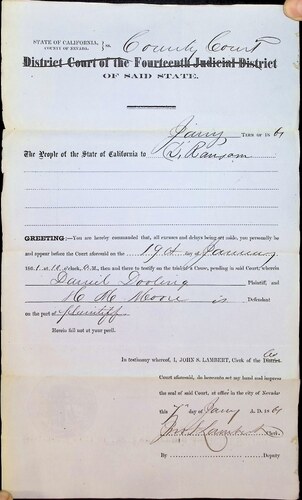 STATE OF CALIFORNIA, } ss. County Court
COUNTY OF NEVADA.
District Court of the Fourteenth Judicial District
OF SAID STATE.
Jany TERM OF 1861
The People of the State of California to
D, Ransom
GREETING:—You are hereby commanded that, all excuses and delays being set aside, you personally be
and appear before the Court aforesaid on the 19th day of January
1861 at 10 o'clock, A.M., then and there to testify on the trial of a Cause, pending in said Court wherein
Daniel Dooling Plaintiff, and
M. M. Moore is Defendant
on the part of plaintiff.
Herein fail not at your peril.
In testimony whereof, I, JOHN S. LAMBERT, Clerk of the
District
Court aforesaid, do hereunto set my hand and impress
the seal of said Court, at office in the city of Nevada
this 7th day of Jany A. D. 1861
Jno S Lambert Clerk.
By Deputy